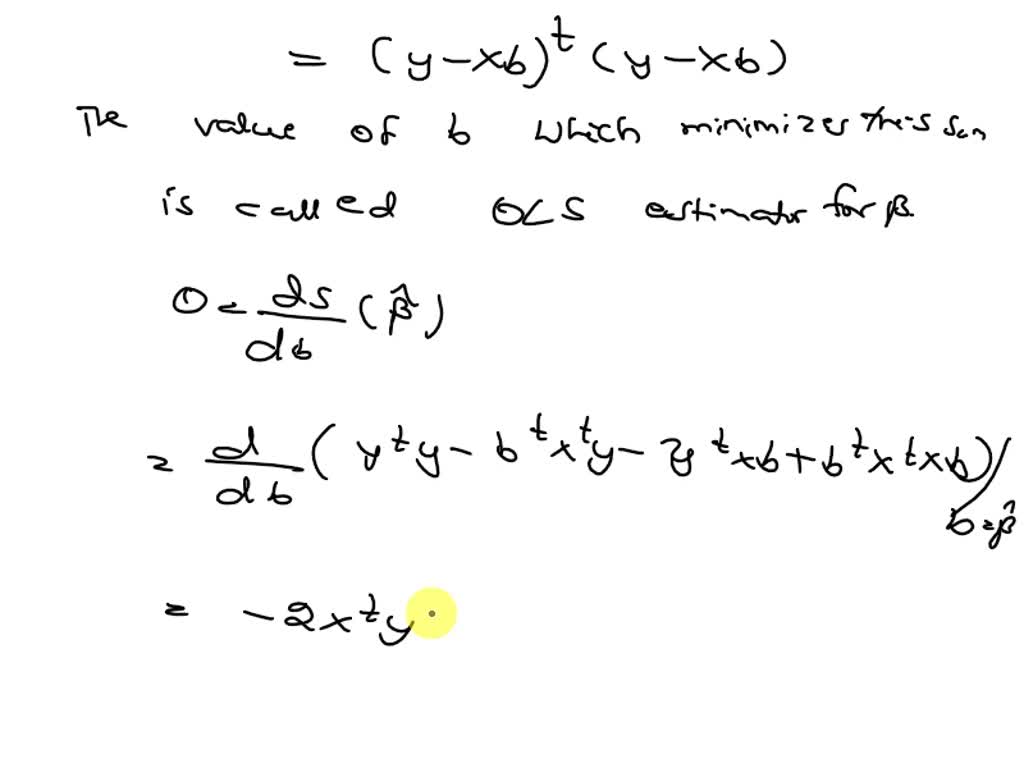 = (y-xb)^t (y-xb)
The value of b which minimizes this sum
is called OLS estimator for β
0 = ds/db (β̂)
= d/db (y^t y - b^t x^t y - y^t xb + b^t x^t xb) / b=β̂
= -2x^t y